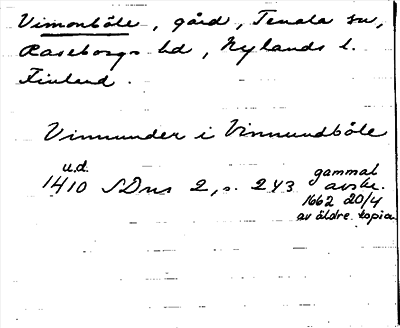 Vimonböle, gård, Tenala sn,
Raseborgs hd, Nylands l.
Finland.
Vinnunder i Vinnundböle
u.d.
1410 SDns 2, s. 243 gammal
avskr.
1662 20/4
av äldre kopia